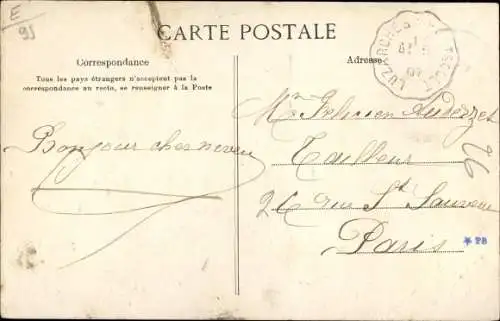 E
95
CARTE POSTALE
Correspondance
Tous les pays étrangers n'acceptent pas la
correspondance au recto, se renseigner à la Poste
Bonjour cher neveu
Adresse
LUZARCHES
07
Mr Felicien
Tailleur
26 rue St Sauveur
Paris
26
* 28